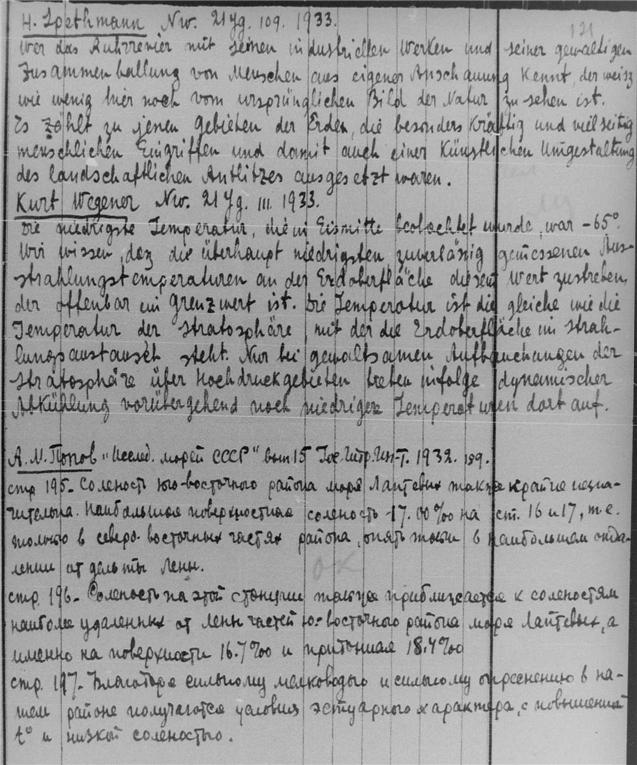 H. Spethmann Nw. 21 Yg. 109. 1933.
Wer das Ruhrrevier mit seinen industriellen Werken und seiner gewaltigen
Zusammenballung von Menschen aus eigener Anschauung kennt der weisz
wie wenig hier noch vom ursprünglichen Bild der Natur zu sehen ist.
Es zählt zu jenen Gebieten der Erde, die besonders Kräftig und vielseitig
menschlichen Eingriffen und damit auch einer Künstlichen Umgestaltung
des landschaftlichen Antlitzes ausgesetzt waren.
Kurt Wegener Nw. 21 Yg. III. 1933.
Die niedrigste Temperatur, die in Eismitte beobachtet wurde, war -65°.
Wir wissen, dasz die überhaupt niedrigsten zuverlässig gemessenen Aus-
strahlungstemperaturen an der Erdoberfläche diesem Wert zustreben,
der offenbar ein Grenzwert ist. Die Temperatur ist die gleiche wie die
Temperatur der Stratosphäre mit der die Erdoberfläche im Strah-
lungsaustausch steht. Nur bei gewaltsamen Aufbauchungen der
Stratosphäre über Hochdruckgebieten treten infolge dynamischer
Abkühlung vorübergehend noch niedrigere Temperaturen dort auf.
А.М. Попов "Исслед. морей СССР" вып 15 Гос. Гидр. Инт. 1932.
стр 195 - Соленость юго-восточного района моря Лаптевых также крайне незна-
чительна. Наибольшая поверхностная соленость - 17.00‰ на ст. 16 и 17, т.е.
только в северо-восточных частях района, опять таки в наибольшем отда-
лении от дельты Лены.
ок
стр. 196 - Соленость на этой станции также приближается к соленостям
наиболее удаленных от Лены частей ю-восточного района моря Лаптевых, а
именно на поверхности 16.7‰ и придонная 18.4‰
стр. 197 - Благодаря сильному мелководью и сильному опреснению в на-
шем районе получаются условия эстуарного характера, с повышенной
t° и низкой соленостью.